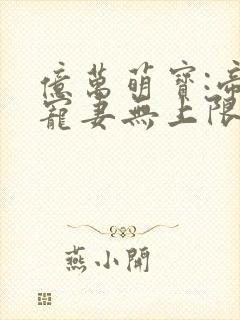 億萬萌寶:帝
寵妻無上限
燕小開